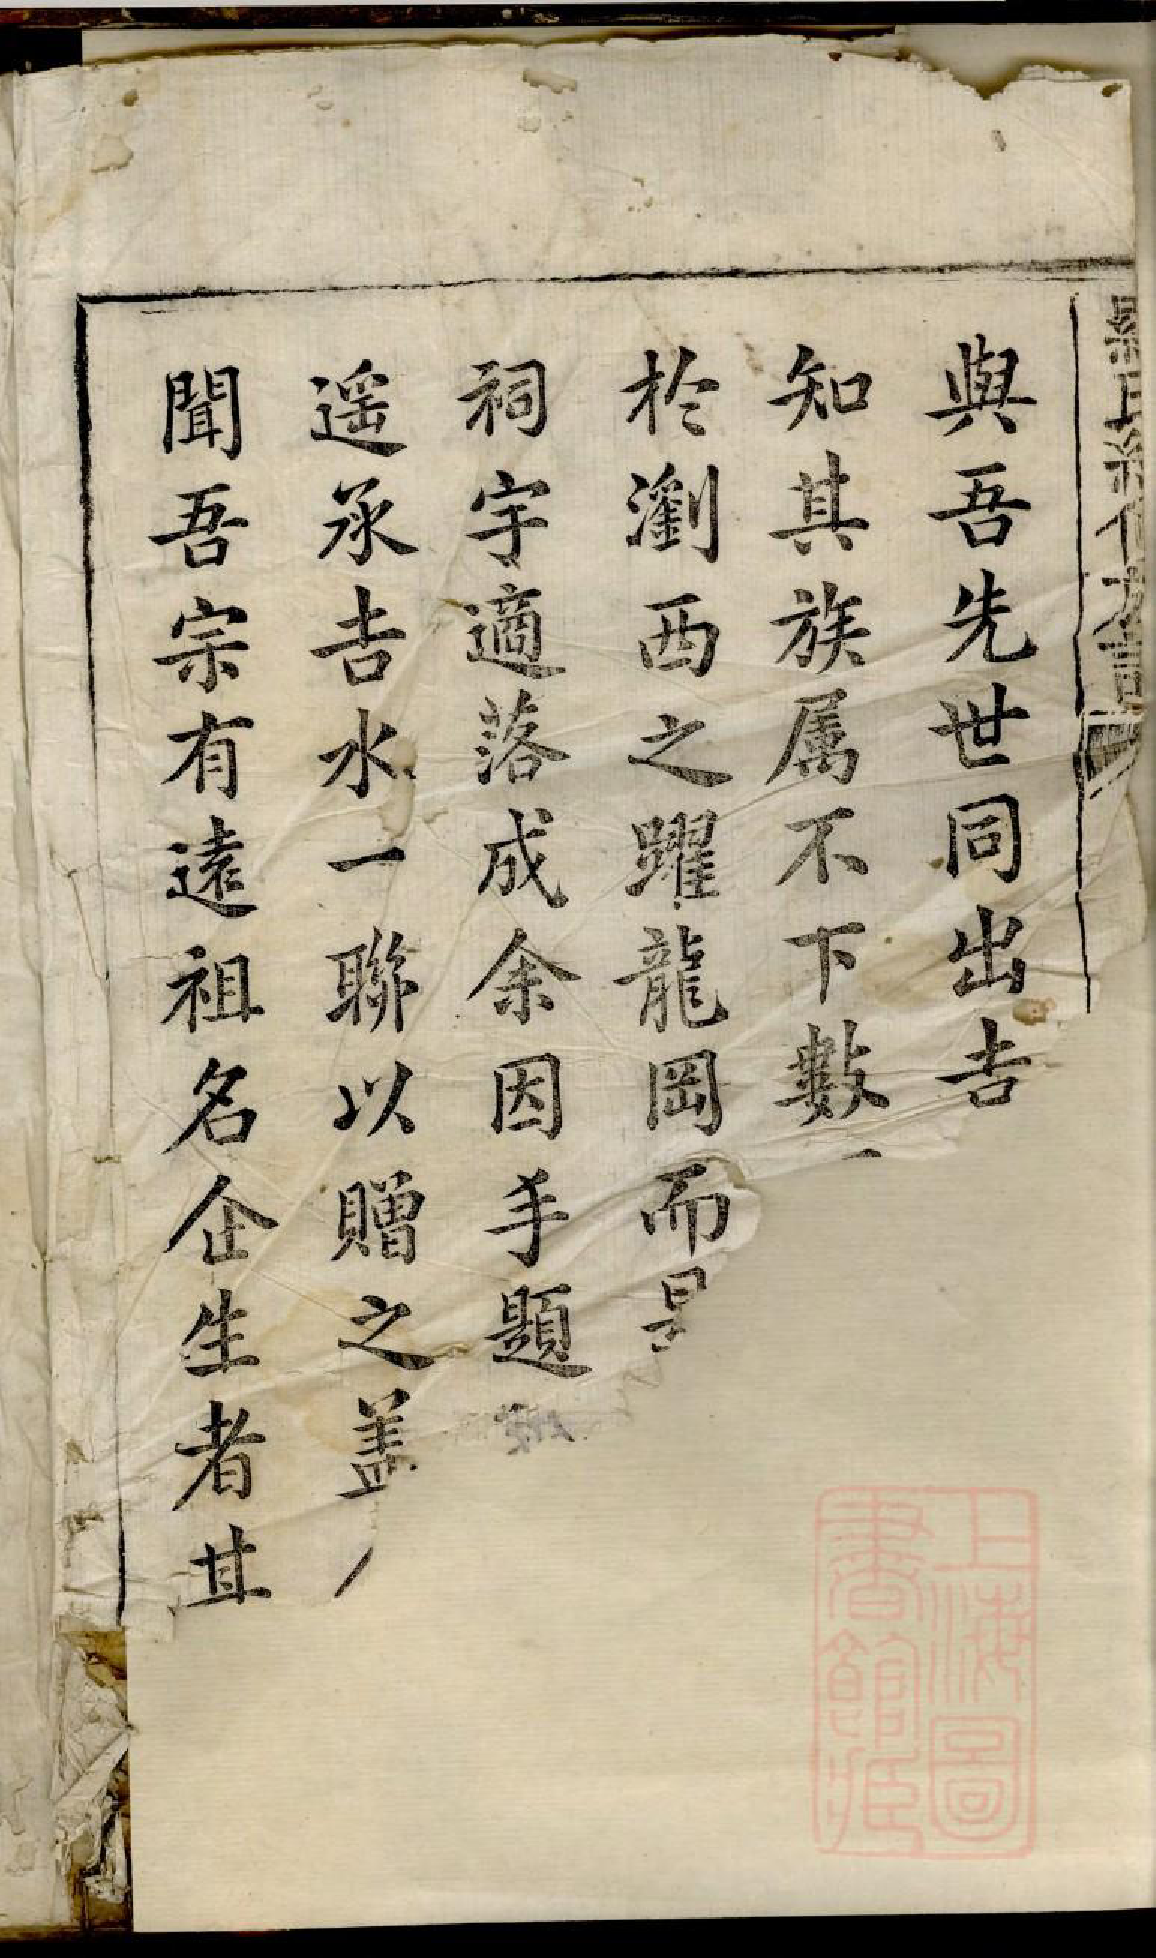 與吾先世同出吉
知其族属不下數
於瀏西之躍龍岡而
祠宇適落成余因手題
遥承吉水一聯以贈之盖
聞吾宗有遠祖名企生者其
上海圖
書館藏